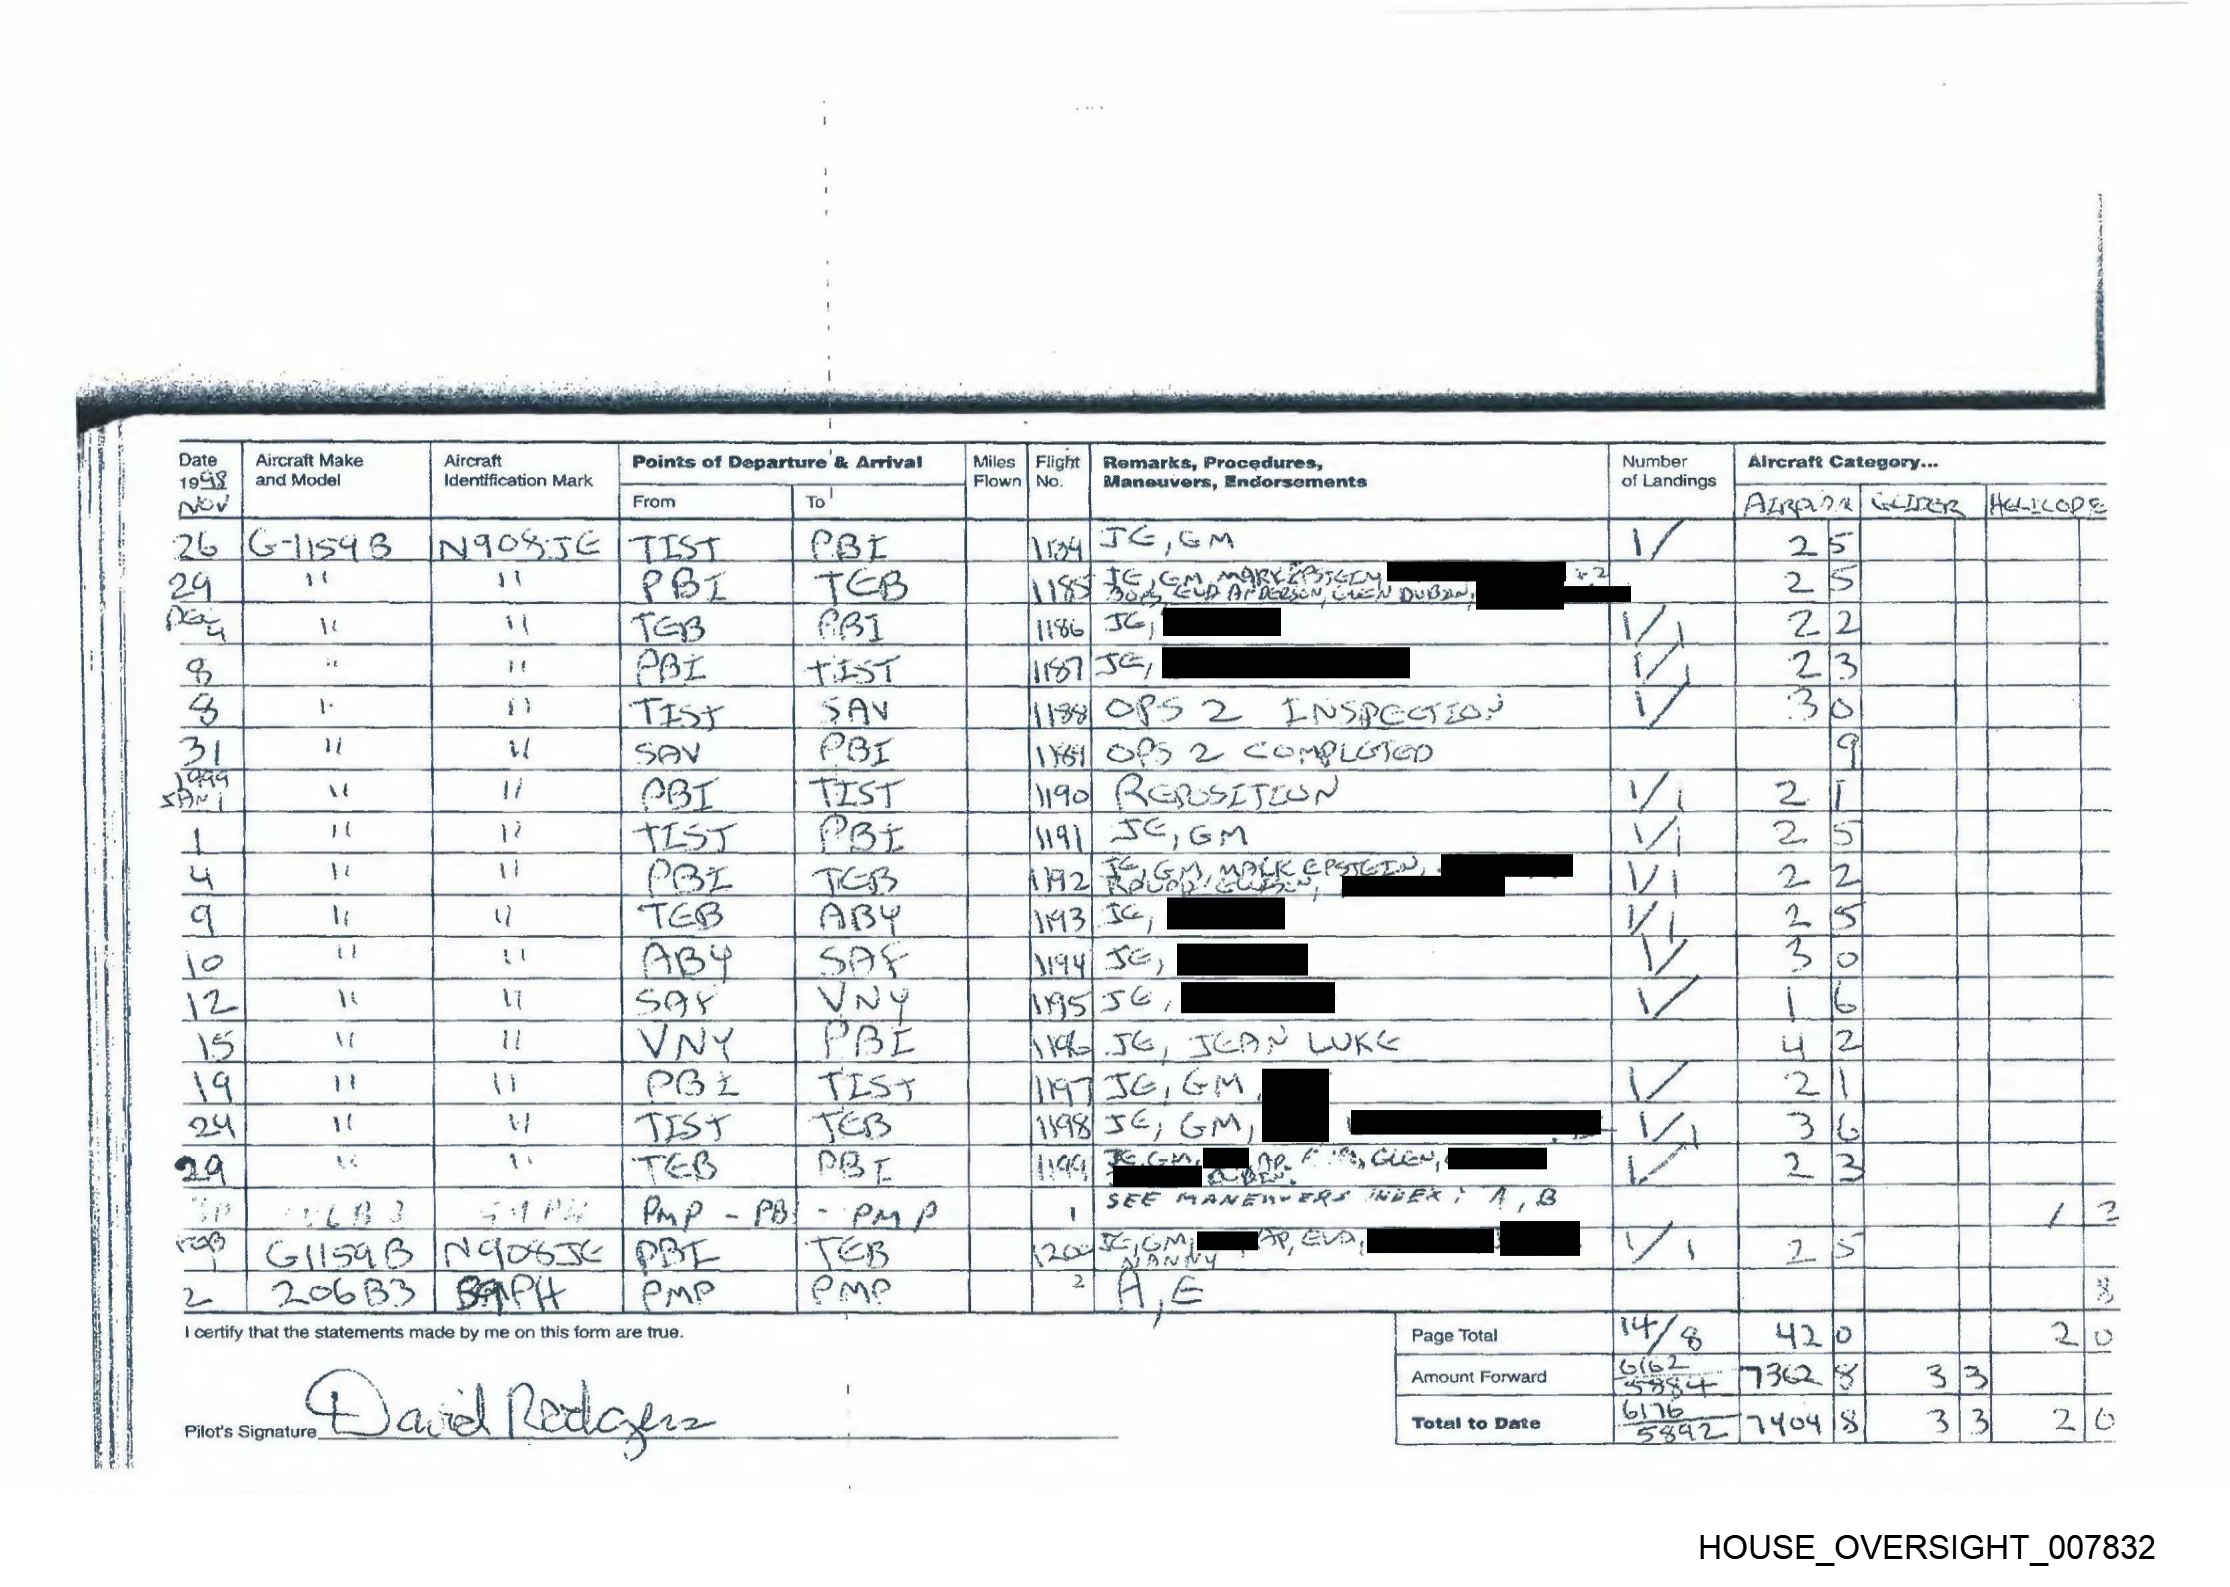 Date Aircraft Make Aircraft Points of Departure & Arrival Miles Flight Remarks, Procedures, Number Aircraft Category...
1998 and Model Identification Mark Flown No. Maneuvers, Endorsements of Landings
NOV From To GLIDER
26 G-1159B N908JE TIST PBI JE, GM 1/ 2 5
29 " " PBI TEB 1185 JE, GM, MARK EPSTEIN, +2
EVA ANDERSON, GLEN DUBIN, 2 5
DEC 4 " " TEB PBI 1186 JE, 1/1 2 2
8 " " PBI TIST 1187 JE, 1/1 2 3
8 " " TIST SAV 1188 OPS 2 INSPECTION 1/ 3 0
31 " " SAV PBI 1189 OPS 2 COMPLETED 9
1999
JAN 1 " " PBI TIST 1190 REPOSITION 1/1 2 1
1 " " TIST PBI 1191 JE, GM 1/1 2 5
4 " " PBI TEB 1192 JE, GM, MARK EPSTEIN, 1/1 2 2
9 " " TEB ABY 1193 JE, 1/1 2 5
10 " " ABY SAF 1194 JE, 1/ 3 0
12 " " SAF VNY 1195 JE, 1/ 1 6
15 " " VNY PBI 1196 JE, JEAN LUKE 4 2
19 " " PBI TIST 1197 JE, GM, 1/ 2 1
24 " " TIST TEB 1198 JE, GM, 1/1 3 6
29 " " TEB PBI 1199 JE, GM, AP, GLEN, 1/ 2 3
PMP - PBI - PMP 1 SEE MANEUVERS INDEX: A, B 1 2
FEB 1 G1159B N908JE PBI TEB 1200 JE, GM, AP, EVA, 1/1 2 5
NANNY
2 206B3 PMP PMP 2 A, E 8
I certify that the statements made by me on this form are true.
Page Total 14/8 42 0 2 0
Amount Forward 6162 5884 7362 8 3 3
Total to Date 6176 5892 7404 8 3 3 2 0
Pilot's Signature David Rodgers
HOUSE_OVERSIGHT_007832